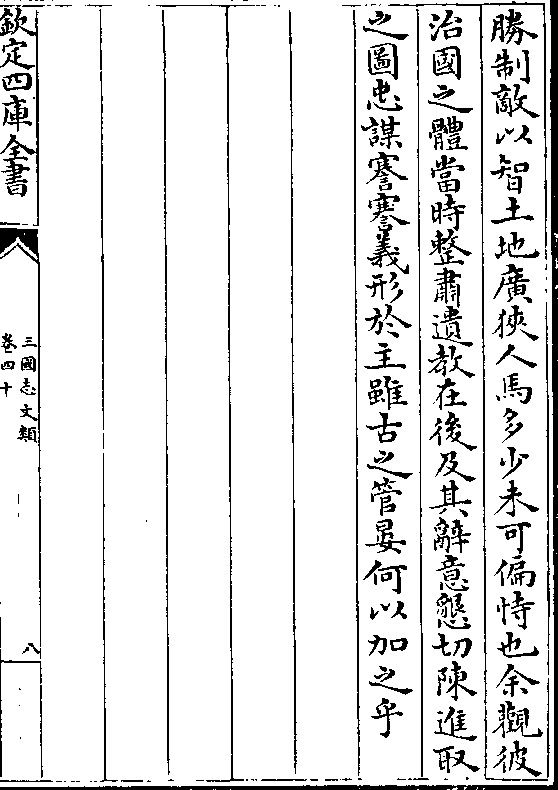 勝制敵以智土地廣狹人馬多少未可偏恃也余觀彼
治國之體當時整肅遺教在後及其辭意懇切陳進取
之圖忠謀謇謇義形於主雖古之管晏何以加之乎
欽定四庫全書
三國志文類
卷四十
八